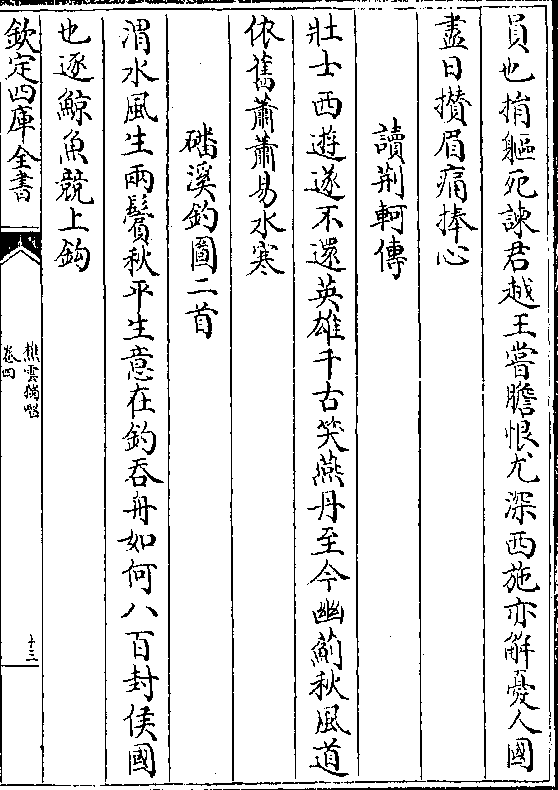 員也捐軀死諫君越王嘗膽恨尤深西施亦解憂人國
盡日攅眉痛捧心
讀荆軻傳
壯士西遊遂不還英雄千古笑燕丹至今幽薊秋風道
依舊蕭蕭易水寒
磻溪釣圖二首
渭水風生兩鬢秋平生意在釣吞舟如何八百封侯國
也逐鯨魚競上鈎
欽定四庫全書
樵雲獨唱
卷四
十三